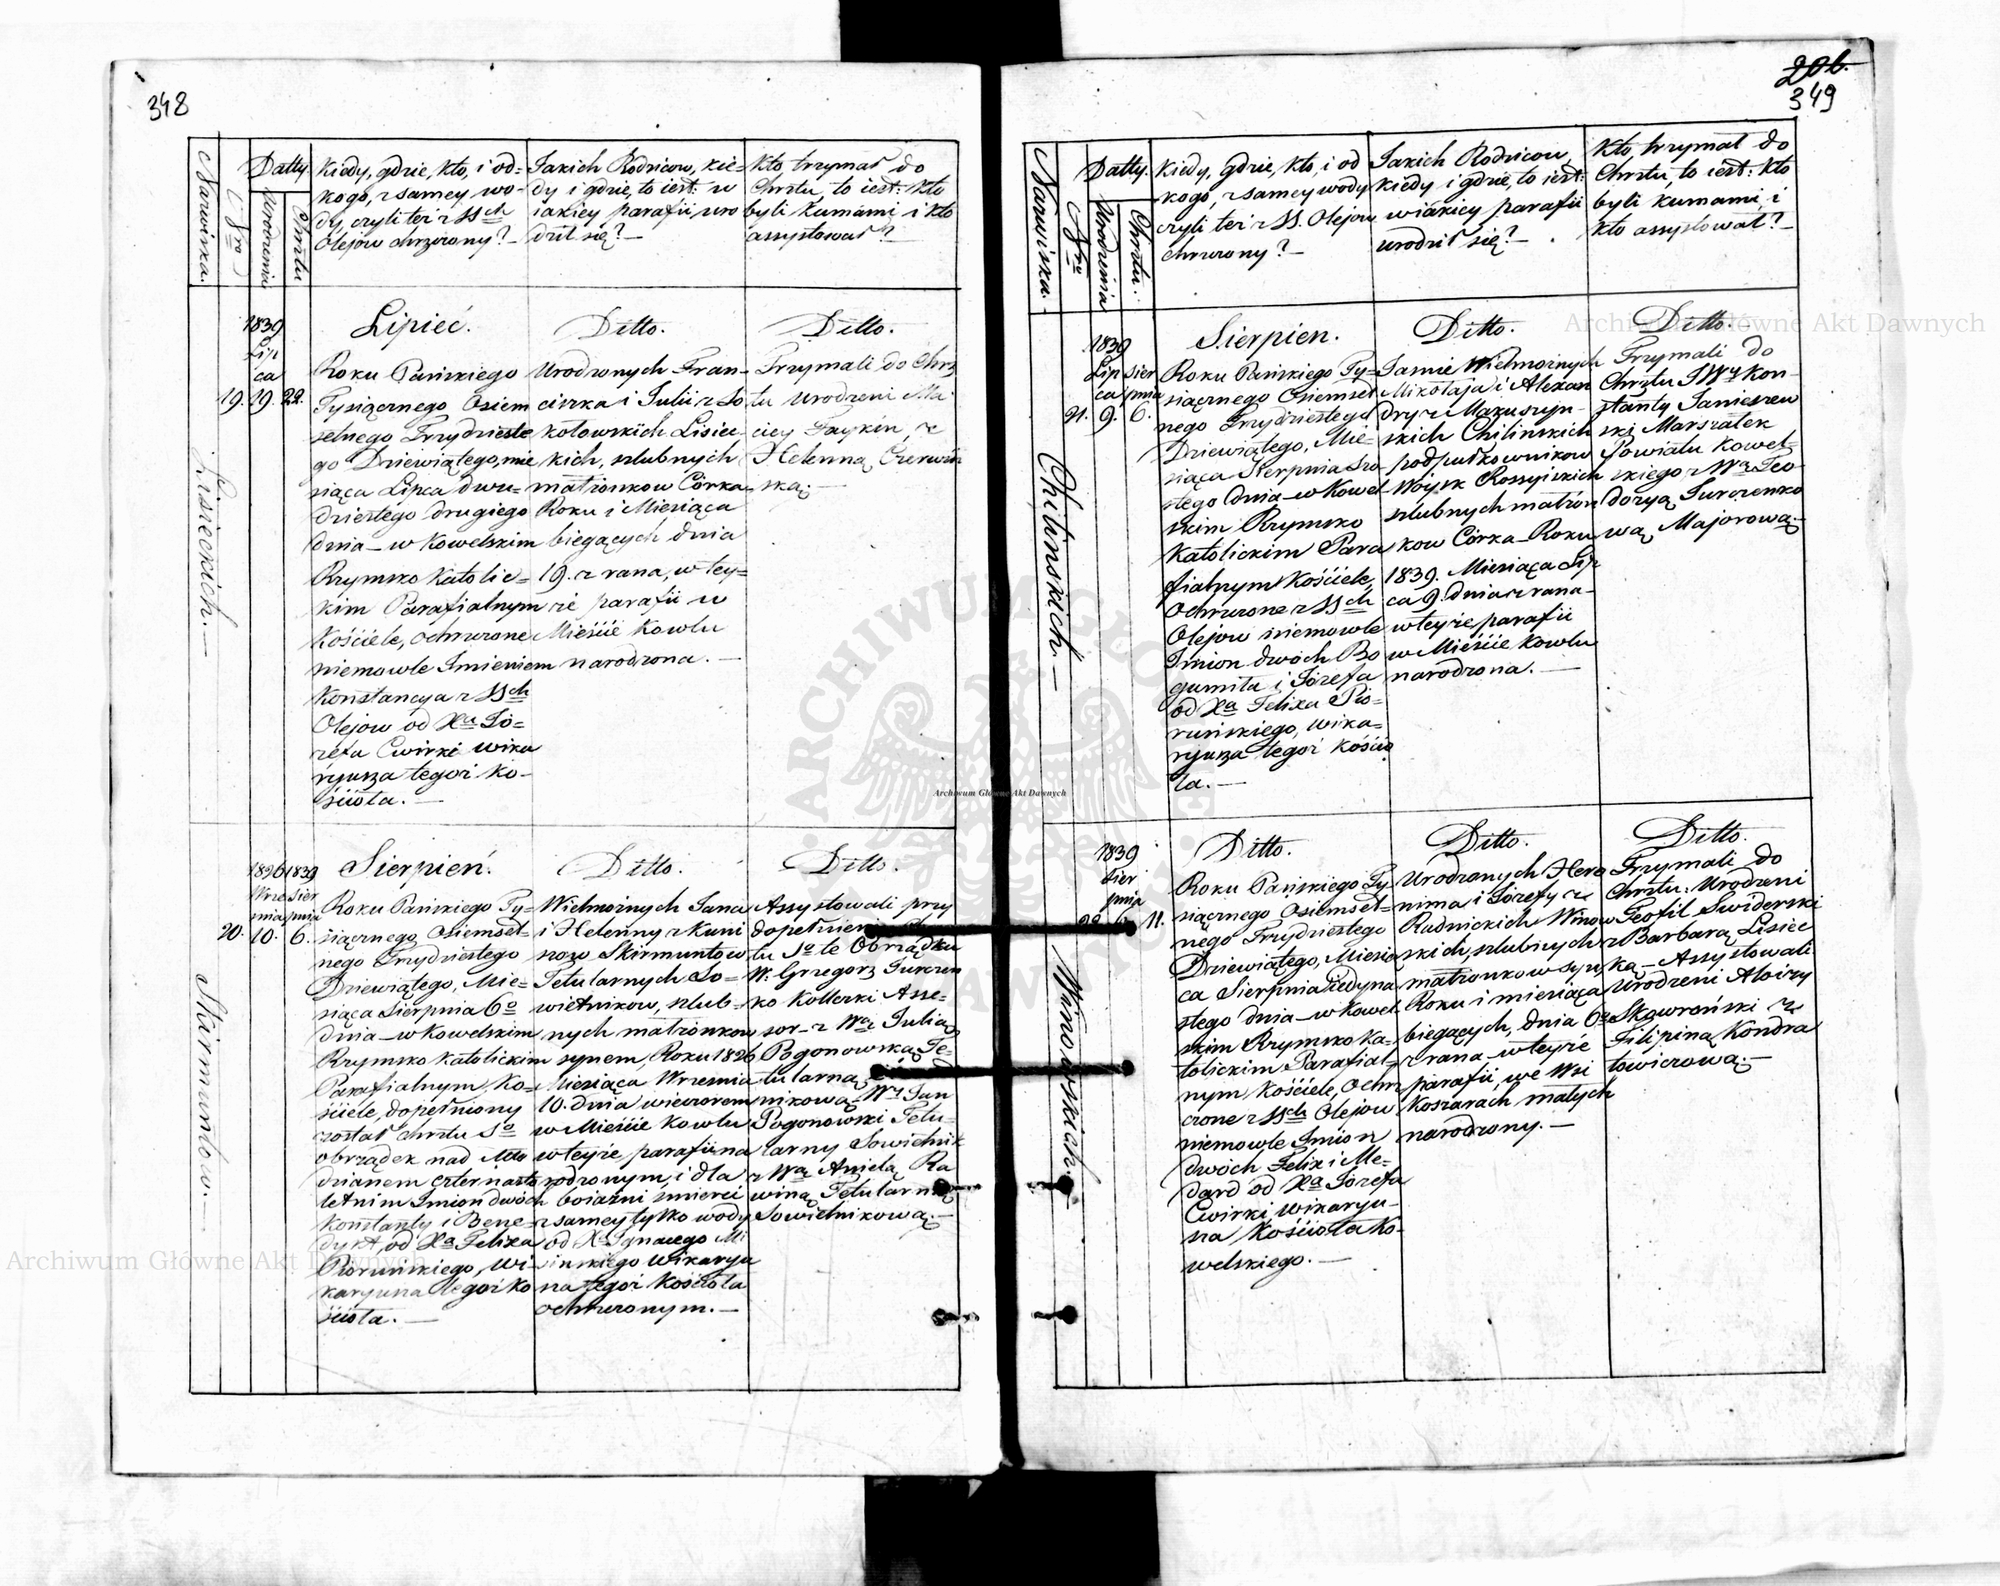 348
Nazwiska.
Nro
Datty.
Urodzenia
Chrztu
Kiedy, gdzie, kto, i od-
kogo, z samey wo-
dy, czyli też z SSch
Olejow chrzczony? —
Jakich Rodzicow, kie-
dy i gdzie, to iest: w
iakiey parafii uro
dził się? —
Kto trzymał do
Chrztu, to iest: kto
byli Kumami i kto
assystował? —
Lisieckich. —
19.
1839
Lip
ca
19.
22.
Lipieć.
Roku Pańskiego
Tysiącznego Osiem
setnego Trzydzieste
go Dziewiątego, mie
siąca Lipca dwu-
dziestego drugiego
dnia — w Kowelskim
Rzymsko Katolic=
kim Parafialnym
Kościele, ochrzczone
niemowle Imieniem
Konstancya z SSch
Olejow od Xa Jó=
zefa Cwirki wika
ryusza tegoż Ko-
ścioła. —
Ditto.
Urodzonych Fran-
ciszka i Julii z So
kołowskich Lisiec-
kich, szlubnych
małżonkow Córka
Roku i Miesiąca
biegących dnia
19. z rana, w tey=
że parafii w
Mieście Kowlu
narodzona. —
Ditto.
Trzymali do Chrz
tu Urodzeni Ma-
ciey Faykin, z
Helenną Czerwiń
ską. —
Skirmuntow. —
20.
1826
Wrze
śnia
10.
1839
Sier
pnia
6.
Sierpień.
Roku Pańskiego Ty-
siącznego Osiemset-
nego Trzydziestego
Dziewiątego, Mie=
siąca Sierpnia 6o
dnia — w Kowelskim
Rzymsko Katolickim
Parafialnym Ko-
ściele, dopełniony
został chrztu So
obrządek nad Mło
dzianem czternasto
letnim Imion dwóch
Konstanty i Bene-
dykt, od Xa Felixa
Piorunskiego, Wi-
karyusza tegoż Ko
ścioła. —
Ditto.
Wielmożnych Jana
i Helenny z Kuni
Skirmuntow
Tetularnych So=
wietnikow, szlub-
nych małżonkow
synem, Roku 1826
Miesiąca Wrzesnia
10. dnia wieczorem
w Mieście Kowlu
w teyże parafii na
rodzonym, i dla
boiazni smierci
z samey tylko wody
od Xa Ignacego Mi
sinskiego Wikaryu
sza tegoż Kościoła
ochrzczonym. —
Ditto.
Assystowali przy
tu So te Obrządku
W. Grzegorz Jurczen
ko Kolleski Asse-
sor — z Wą Julią
Pogonowską Te-
tularną
nikową — Wy Jan
Pogonowski Tetu-
larny Sowietnik
z Wą Anielą Ra
winą Tetularną
Sowietnikową. —
20b.
349
Nazwiska.
Nro
Datty.
Urodzenia
Chrztu.
Kiedy, gdzie, kto, i od
kogo, z samey wody
czyli też z SS. Olejow
chrzczony? —
Jakich Rodzicow,
kiedy i gdzie, to iest:
w iakiey parafii
urodził się? —
Kto trzymał do
Chrztu, to iest: kto
byli kumami, i
kto assystował? —
Chilinskich. —
21.
1839
Lip
ca
9.
Sier
pnia
6.
Sierpien.
Roku Pańskiego Ty-
siącznego Osiemset
nego Trzydziestego
Dziewiątego, Mie-
siąca Sierpnia szo
stego dnia — w Kowel
skim Rzymsko
Katolickim Para
fialnym Kościele,
Ochrzczone z SSch
Olejow niemowle
Imion dwóch Bo
gumiła i Józefa
od Xa Felixa Pio-
runskiego, wika-
ryusza tegoż Kościo
ła. —
Ditto.
Jasnie Wielmożnych
Mikołaja i Alexan
dry z Makuszyn-
skich Chilinskich
podpułkownikow
Woysk Rossyiskich
szlubnych małżon
kow Córka — Roku
1839. Miesiąca Lip
ca 9. dnia z rana —
w teyże parafii
w Mieście Kowlu
narodzona. —
Ditto.
Trzymali do
Chrztu JWy Kon-
stanty Janiszew
ski Marszałek
Powiatu Kowel-
skiego z Wą Teo-
dozyą Jurczenko
wą Majorową. —
Winowskich. —
22.
1839
Sier
pnia
6.
11.
Ditto.
Roku Pańskiego Ty
siącznego Osiemset-
nego Trzydziestego
Dziewiątego, Miesią
ca Sierpnia Jedyna
stego dnia — w Kowel
skim Rzymsko Ka-
tolickim Parafial-
nym Kościele, Ochrz
czone z SSch Olejow
niemowle Imion
dwóch Felix i Me-
dard od Xa Józefa
Cwirki, wikaryu-
sza Kościoła Ko-
welskiego. —
Ditto.
Urodzonych Hero
nima i Józefy z
Rudnickich Winow
skich, szlubnych
małżonkow syn,
Roku i miesiąca
biegących, dnia 6o
z rana — w teyże
parafii, we Wsi
Koszarach małych
narodzony. —
Ditto.
Trzymali do
Chrztu: Urodzeni
Teofil Swiderski
z Barbarą Lisiec
ką — Assystowali
Urodzeni Aloizy
Skowroński z
Filipiną Kondra
towiczową. —
Archiwum Główne Akt Dawnych
Archiwum Główne Akt Dawnych
Archiwum Główne Akt Dawnych